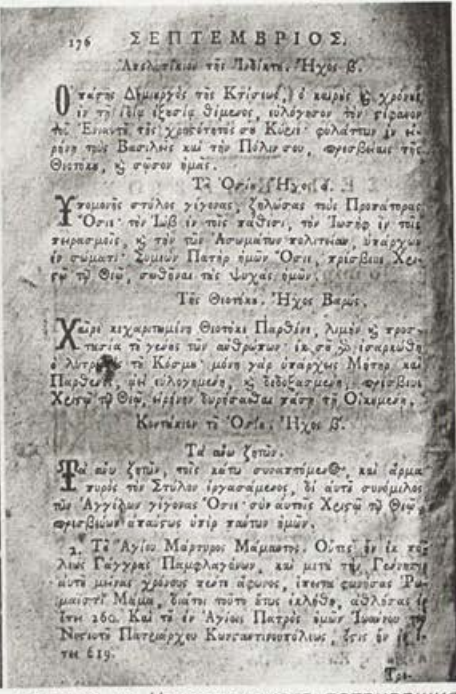 176 ΣΕΠΤΕΜΒΡΙΟΣ.
Ἀπολυτίκιον τῆς Ἰνδίκτου. Ἦχος β'.
Ὁ πάσης Δημιουργὸς τῆς Κτίσεως, ὁ καιροὺς καὶ χρόνους
ἐν τῇ ἰδίᾳ ἐξουσίᾳ θέμενος, εὐλόγησον τὸν στέφανον
τοῦ Ἐνιαυτοῦ τῆς χρηστότητός σου Κύριε· φυλάττων ἐν εἰ-
ρήνῃ τοὺς Βασιλεῖς καὶ τὴν Πόλιν σου, πρεσβείαις τῆς
Θεοτόκου, καὶ σῶσον ἡμᾶς.
Τοῦ Ὁσίου. Ἦχος
Ὑπομονῆς στύλος γέγονας, ζηλώσας τοὺς Προπάτορας
Ὅσιε· τὸν Ἰὼβ ἐν τοῖς πάθεσι, τὸν Ἰωσὴφ ἐν τοῖς
πειρασμοῖς, καὶ τὴν τῶν Ἀσωμάτων πολιτείαν, ὑπάρχων
ἐν σώματι· Συμεὼν Πατὴρ ἡμῶν Ὅσιε, πρέσβευε Χρι-
στῷ τῷ Θεῷ, σωθῆναι τὰς ψυχὰς ἡμῶν.
Τῆς Θεοτόκου. Ἦχος Βαρύς.
Χαῖρε κεχαριτωμένη Θεοτόκε Παρθένε, λιμὴν καὶ προσ-
τασία τοῦ γένους τῶν ἀνθρώπων· ἐκ σοῦ γὰρ ἐσαρκώθη
ὁ λυτρωτὴς τοῦ Κόσμου· μόνη γὰρ ὑπάρχεις Μήτηρ καὶ
Παρθένος, ἀεὶ εὐλογημένη, καὶ δεδοξασμένη πρέσβευε
Χριστῷ τῷ Θεῷ, εἰρήνην δωρήσασθαι πάσῃ τῇ Οἰκουμένῃ.
Κοντάκιον τοῦ Ὁσίου. Ἦχος β'.
Τὰ ἄνω ζητῶν.
Τὰ ἄνω ζητῶν, τοῖς κάτω συναπτόμενος, καὶ ἅρμα
πυρὸς τὸν Στύλον ἐργασάμενος, δι' αὐτοῦ συνόμιλος
τῶν Ἀγγέλων γέγονας Ὅσιε· σὺν αὐτοῖς Χριστῷ τῷ Θεῷ
πρεσβεύων ἀπαύστως ὑπὲρ πάντων ἡμῶν.
2. Τοῦ Ἁγίου Μάρτυρος Μάμαντος. Οὗτος ἦν ἐκ πό-
λεως Γάγγρας Παμφλαγόνων, καὶ μετὰ τὴν Γέννησιν
αὐτοῦ μείνας χρόνους πέντε ἄφωνος, ἔπειτα φωνήσας Ῥω-
μαϊστὶ Μάμα, διὰ τοι τοῦτο οὕτως ἐκλήθη, ἀθλήσας ἐν
ἔτει 260. Καὶ τοῦ ἐν Ἁγίοις Πατρὸς ἡμῶν Ἰωάννου τοῦ
Νηστευτοῦ Πατριάρχου Κωνσταντινουπόλεως, ὅστις ἦν ἐν ἔ-
τει 619.